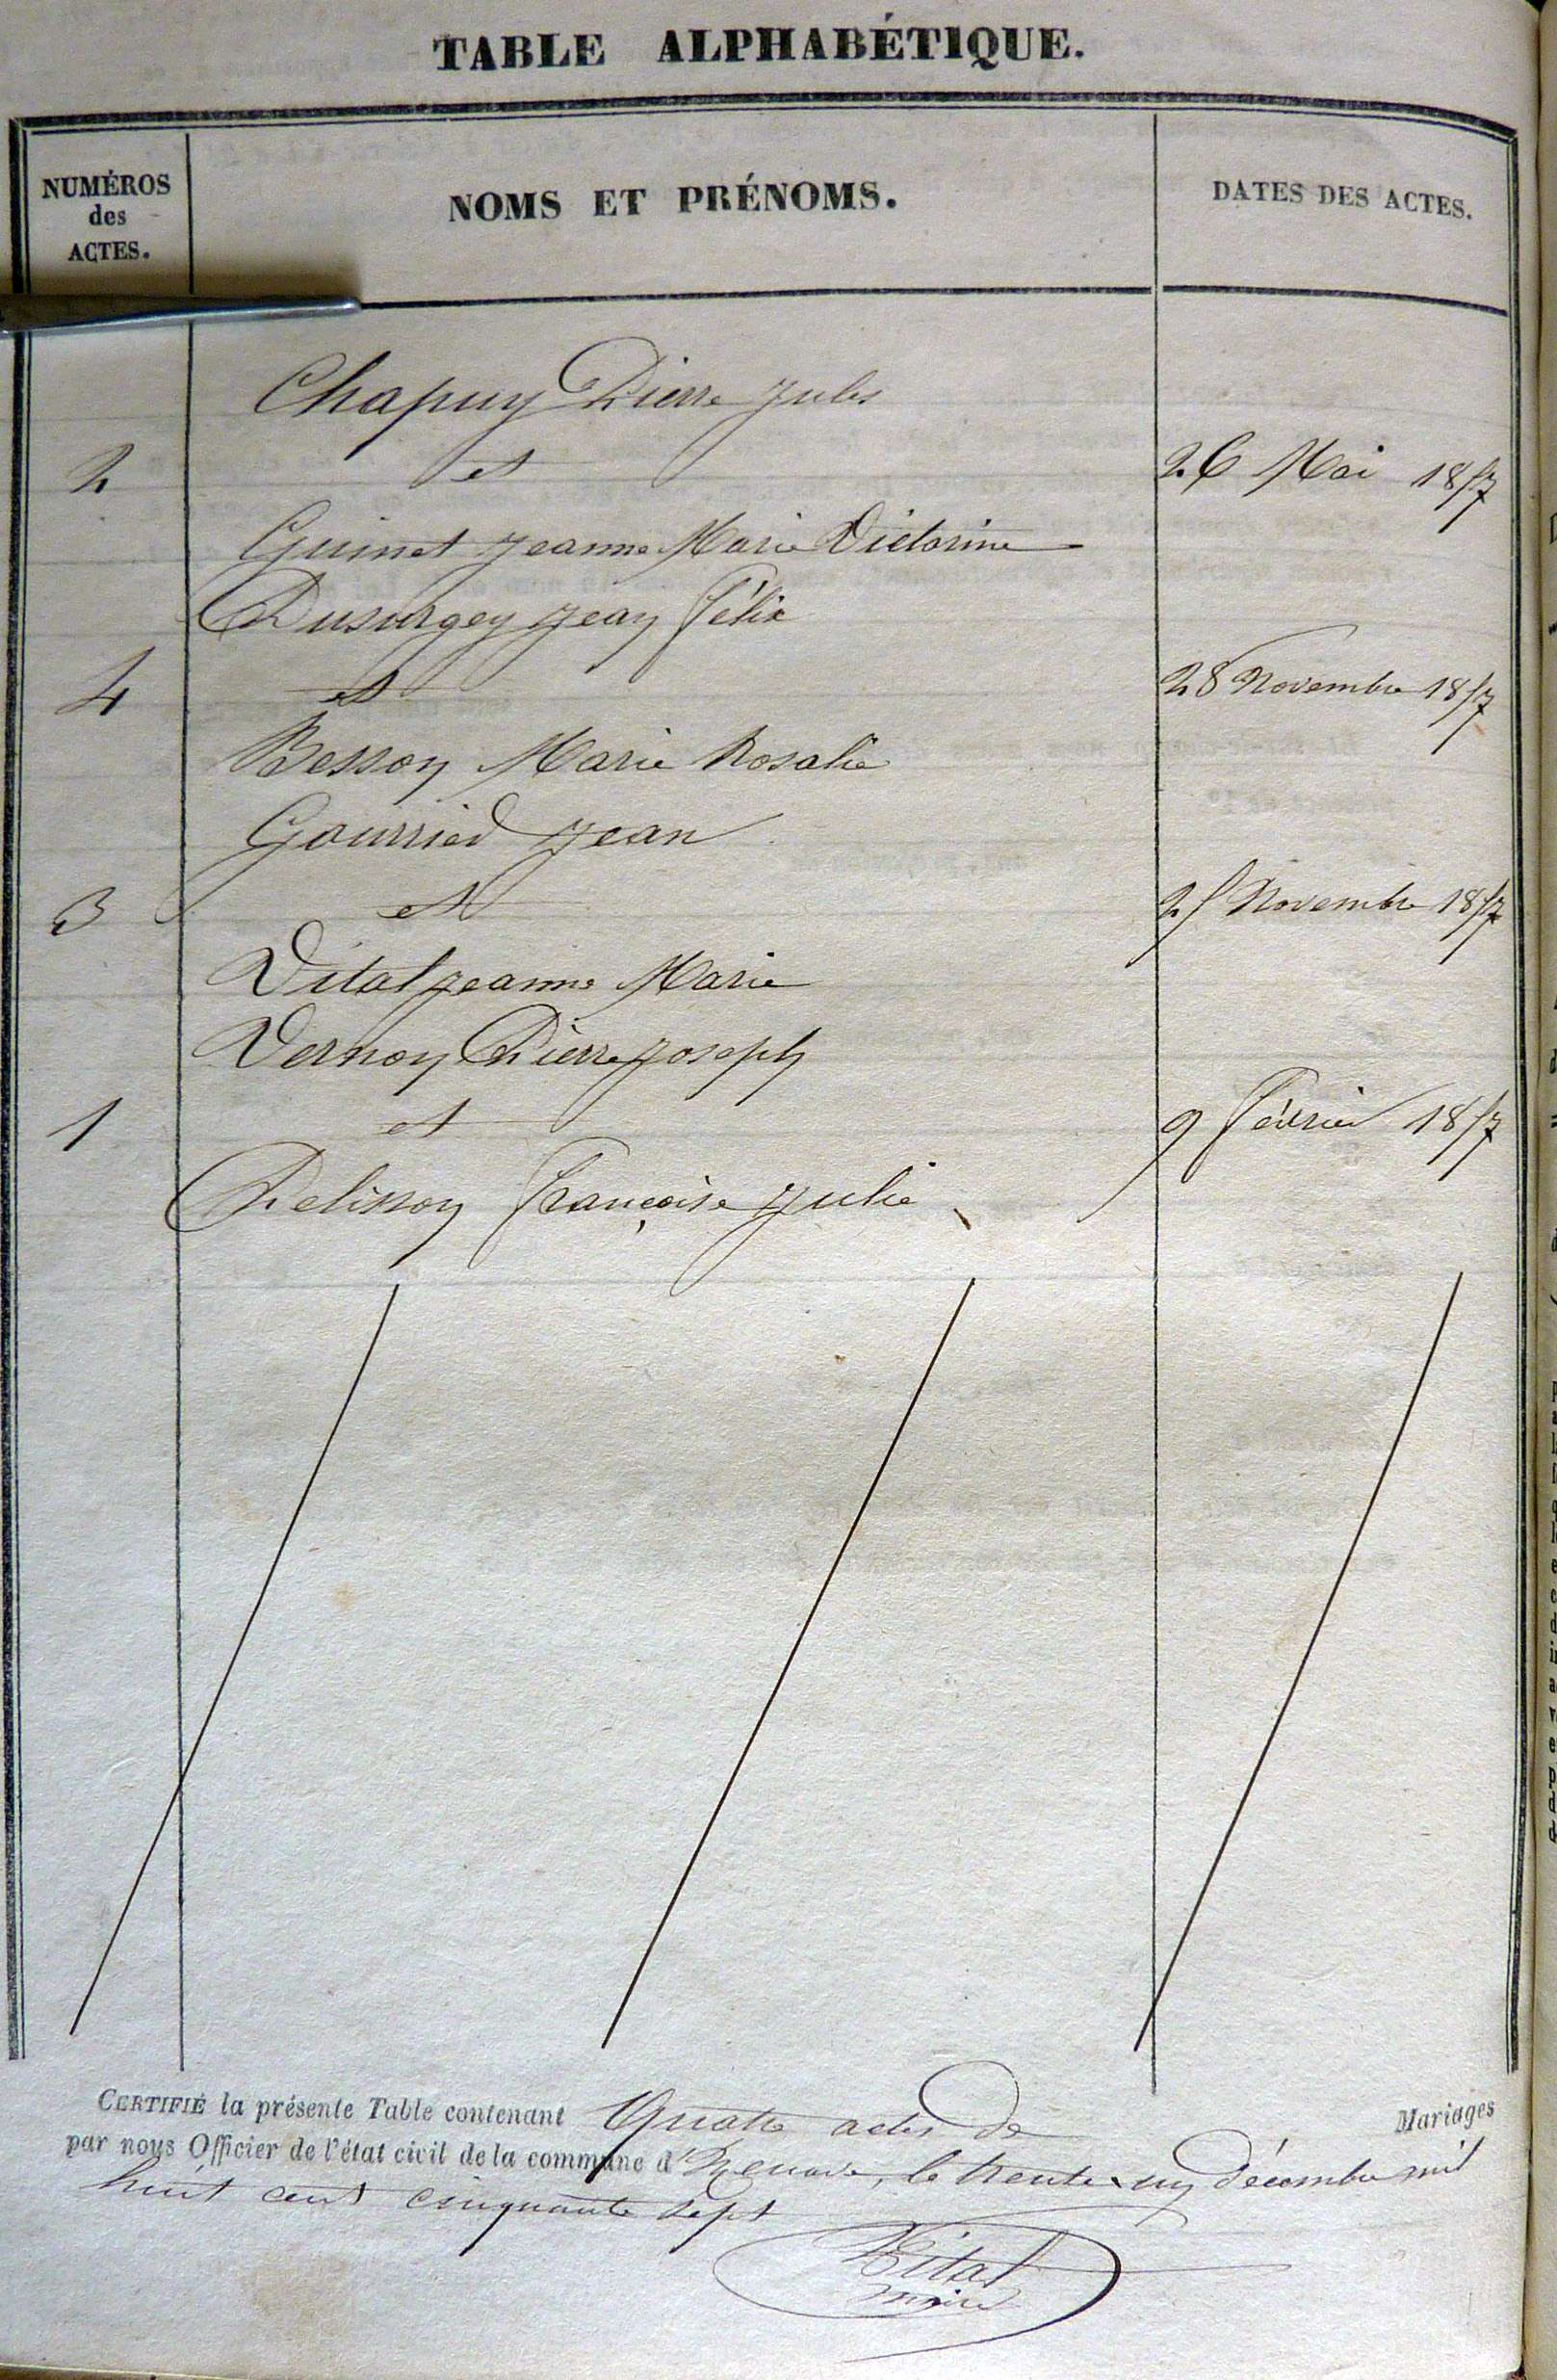 TABLE ALPHABÉTIQUE.
NUMÉROS
des
ACTES.
NOMS ET PRÉNOMS.
DATES DES ACTES.
Chapuy Pierre Jules
2 et 26 Mai 1857
Guinet Jeanne Marie Victorine
Dusurgey Jean Félix
4 et 28 Novembre 1857
Besson Marie Rosalie
Gourried Jean
3 et 25 Novembre 1857
Vital Jeanne Marie
Vernoy Pierre Joseph
1 et 9 Février 1857
Pelisson Françoise Julie
CERTIFIÉ la présente Table contenant Quatre actes de Mariages
par nous Officier de l'état civil de la commune d' le trente un décembre mil
huit cent cinquante sept
Vital
maire